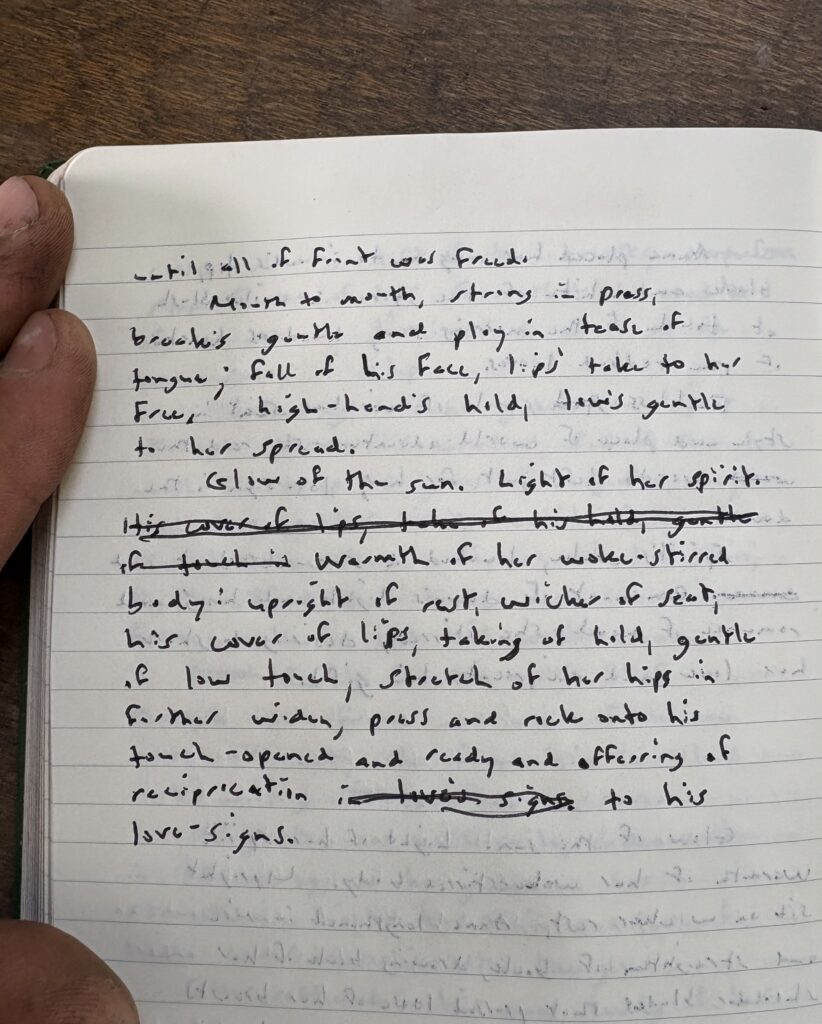 until all of front was freed.
Mouth to mouth, strong in press,
break's gentle and play in tease of
tongue; fall of his face, lips' take to her
free, high-hand's hold, love's gentle
to her spread.
Glow of the sun. Light of her spirit.
His cover of lips, take of his hold, gentle
of touch in Warmth of her woke-stirred
body: upright of rest, wicker of seat,
his cover of lips, taking of hold, gentle
of low touch, stretch of her hips in
further widen, press and rock onto his
touch-opened and ready and offerring of
reciprication in love's signs. to his
love-signs.